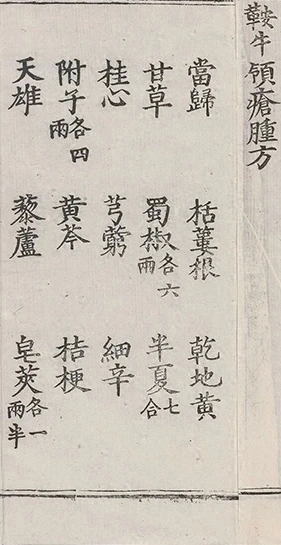 鞍牛領瘡腫方
當歸 栝蔞根 乾地黃
甘草 蜀椒各六兩 半夏七合
桂心 芎藭 細辛
附子各四兩 黃芩 桔梗
天雄 藜蘆 皂莢各一兩半